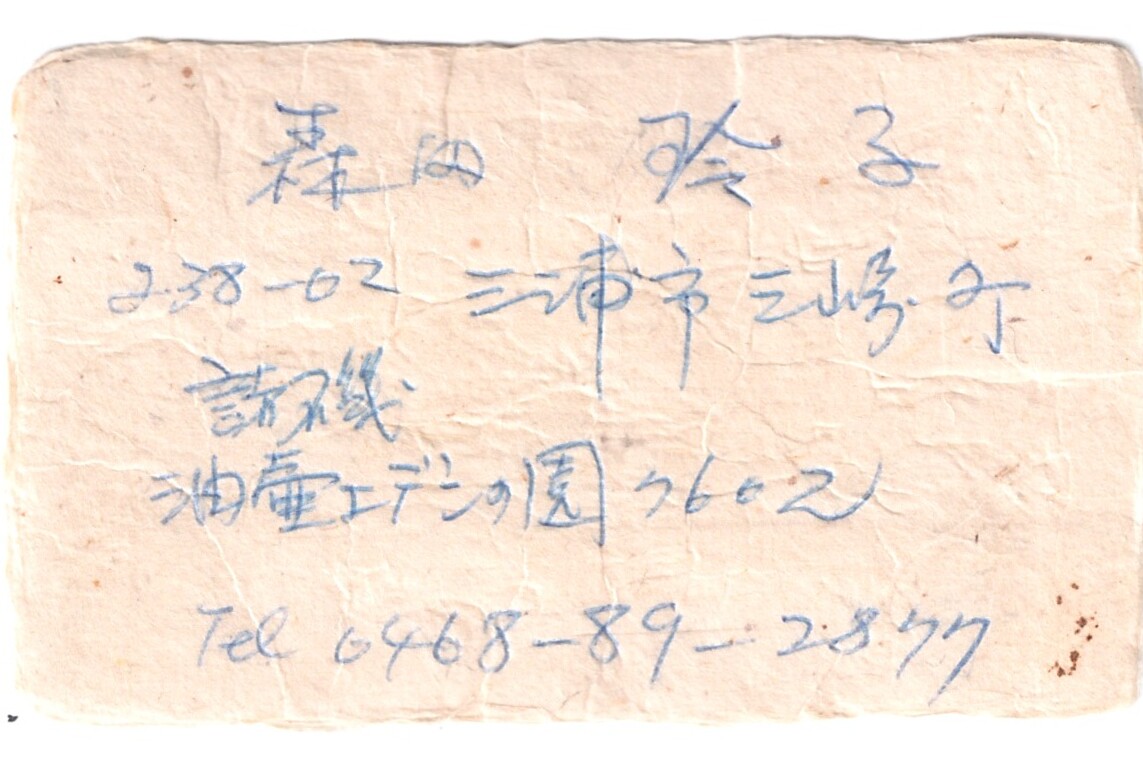 森田 玲子
238-02 三浦市三崎町
諸磯
油壷エデンの園 7602
Tel 0468-89-2877